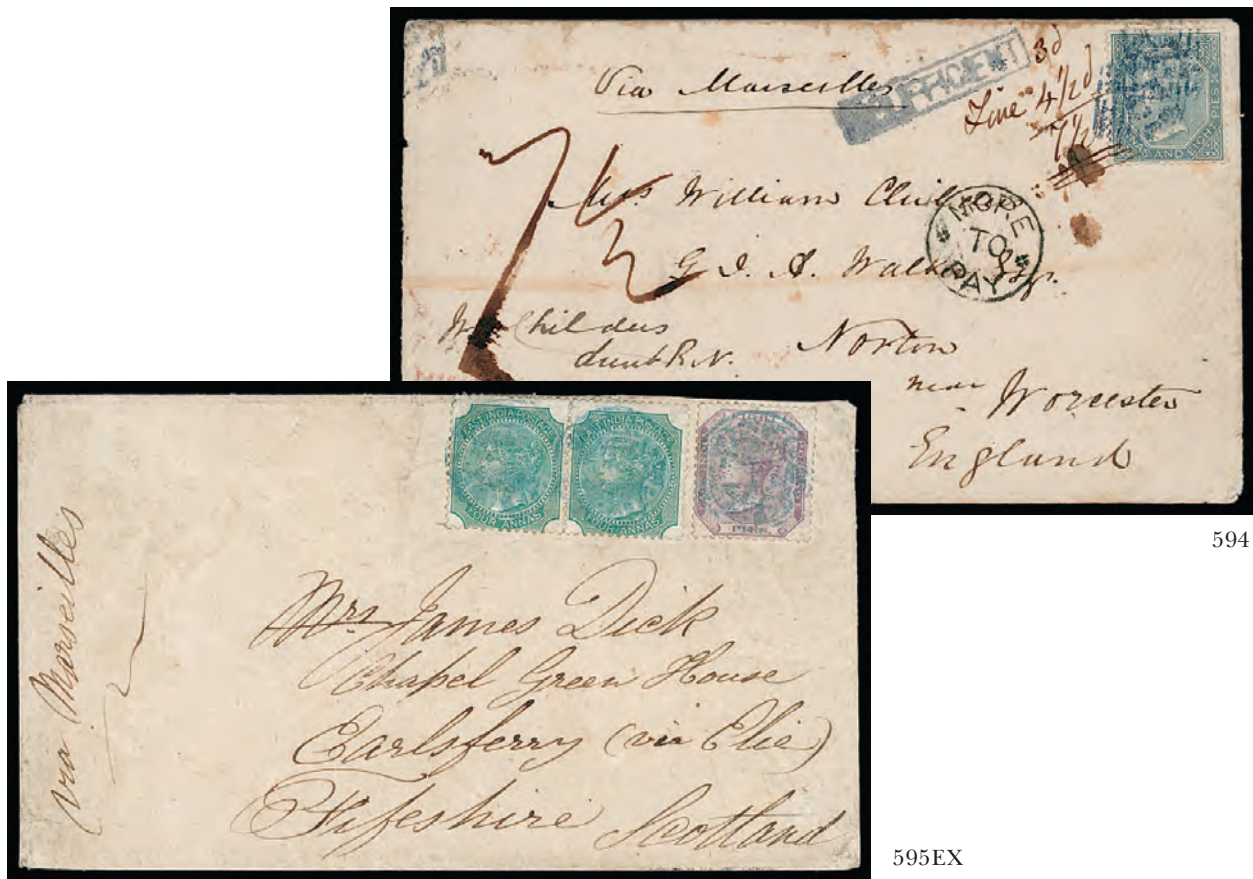 Via Marseilles
3d
Fine 4½d
7½
MORE
TO
PAY
William
G. I. A.
Norton
near Worcester
England
594
EAST INDIA POSTAGE
FOUR ANNAS
EAST INDIA POSTAGE
FOUR ANNAS
via Marseilles
Mrs James Dick
Chapel Green House
Earlsferry (via Elie)
Fifeshire Scotland
595EX